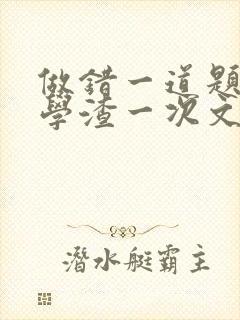 做錯一道題
學渣一次文
潛水艇霸主